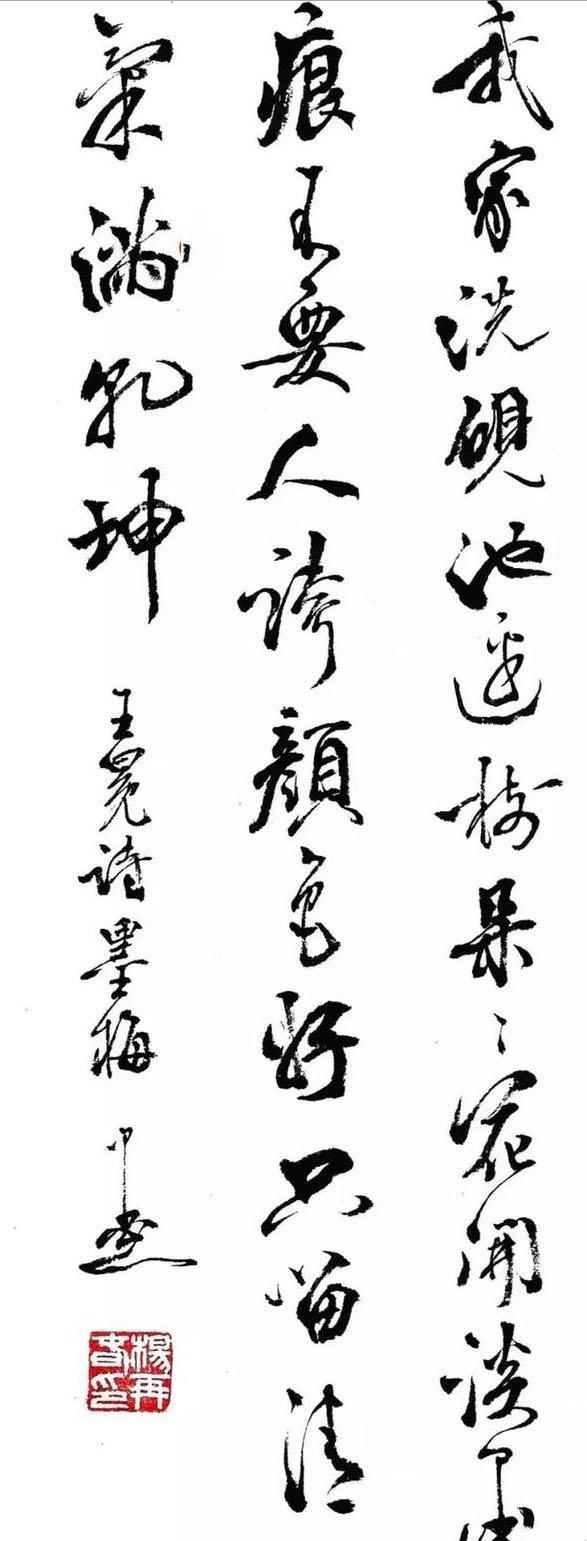 我家洗硯池邊樹朵〻花開淡墨
痕不要人誇顏色好只留清
氣滿乾坤
王冕詩墨梅
楊再春印